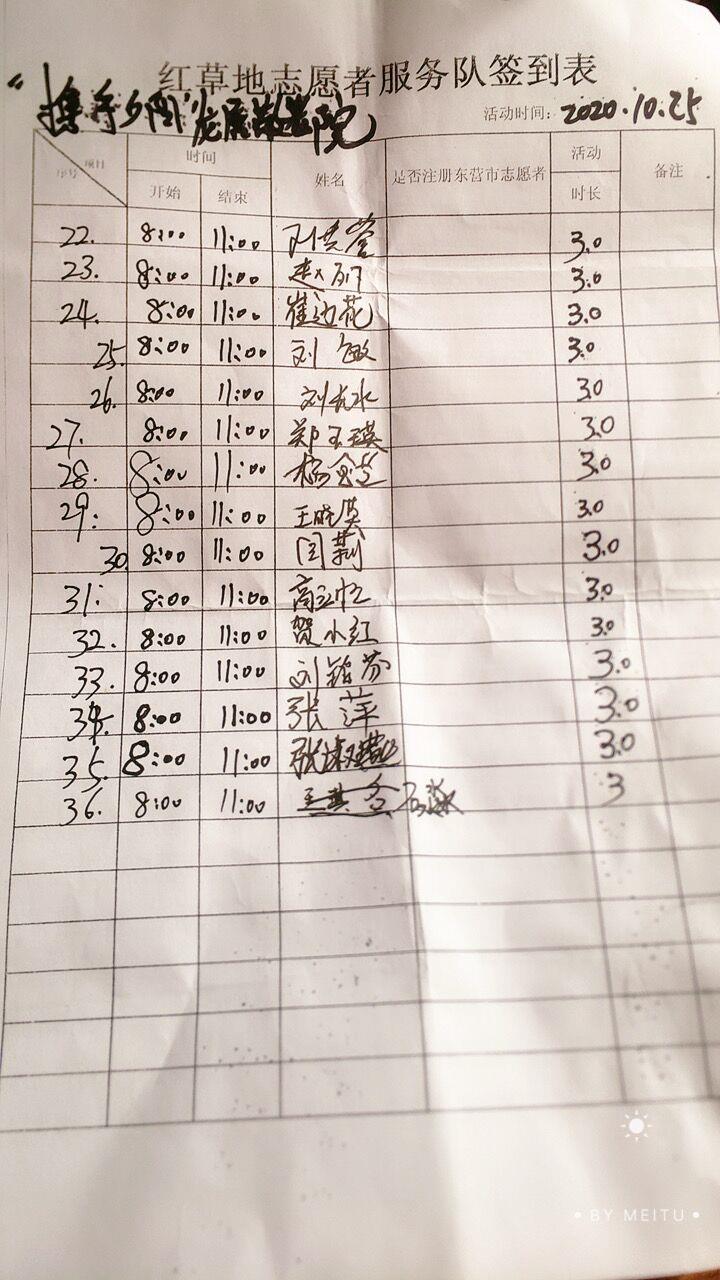 红草地志愿者服务队签到表
“携手夕阳” 敬老院
活动时间：2020.10.25
序号 项目 时间 开始 结束 姓名 是否注册东营市志愿者 活动时长 备注
22. 8:00 11:00 3.0
23. 8:00 11:00 3.0
24. 8:00 11:00 崔边花 3.0
25. 8:00 11:00 刘敏 3.0
26. 8:00 11:00 刘长水 3.0
27. 8:00 11:00 郑玉瑛 3.0
28. 8:00 11:00 杨金芝 3.0
29. 8:00 11:00 王晓英 3.0
30 8:00 11:00 闫莉 3.0
31. 8:00 11:00 3.0
32. 8:00 11:00 贺小红 3.0
33. 8:00 11:00 刘 芬 3.0
34. 8:00 11:00 张萍 3.0
35. 8:00 11:00 张淑 3.0
36. 8:00 11:00 3
BY MEITU